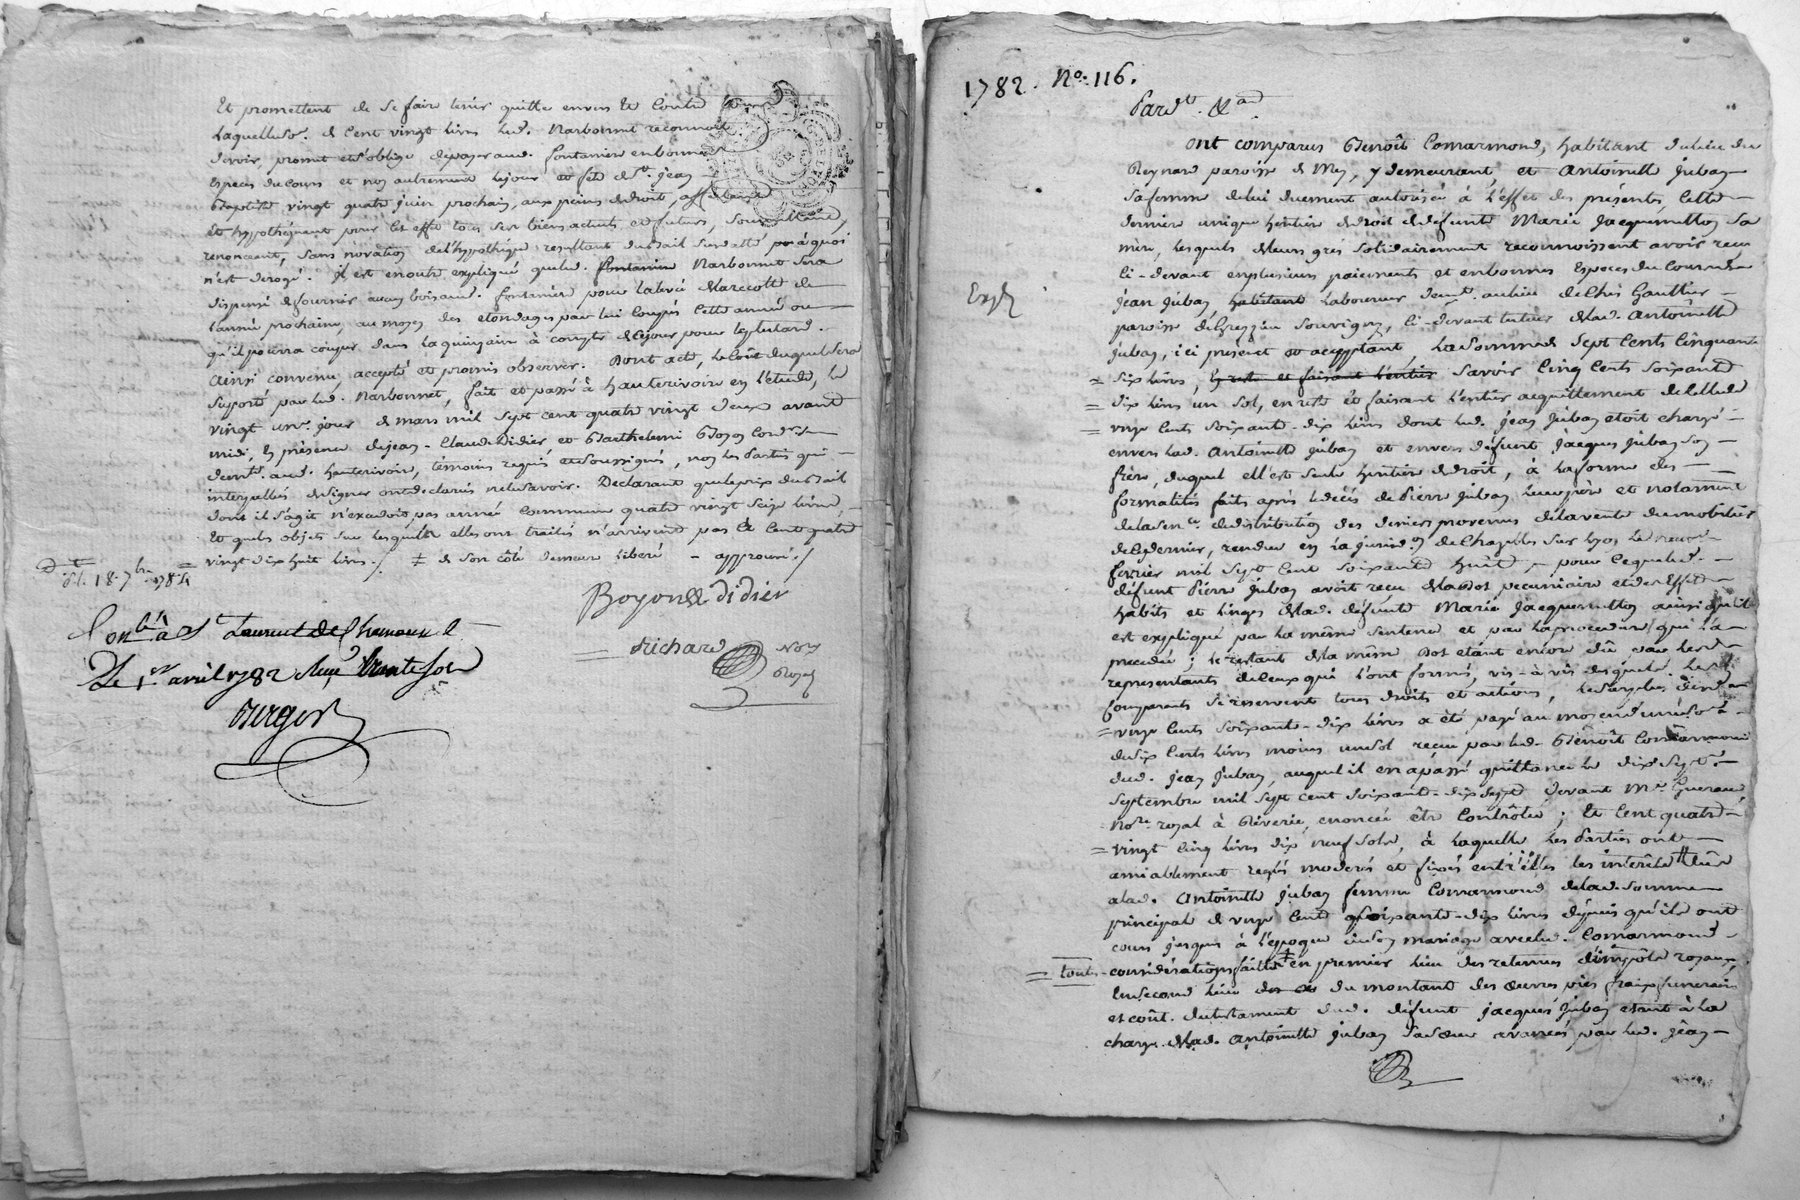 Et promettent de se faire tenir quitte envers et contre tous.
Laquelle so.e de cent vingt livres led. Narbonnet reconnoit
devoir, promet et s'oblige de payer aud. fontanier en bonnes
especes du cours et non autrement le jour et fête de st. jean
Baptiste vingt quatre juin prochain, aux peines de droit, affectant
et hypothéquant pour cet effet tous ses biens actuels et futurs,
renonceant, sans novation de l'hypothéque resultant du bail susdatté à quoi
n'est derogé. il est en outre expliqué que led. fontanier Narbonnet sera
dispensé de fournir aucun bois aud. fontanier pour la levée de la recolte de
l'année prochaine, au moyen des par lui cette année ou
qu'il pourra couper dans la quinzaine à compter de ce jour pour le plus tard.
Ainsi convenu, accepté et promis observer. Dont acte, le coût duquel sera
supporté par led. Narbonnet, fait et passé à hauterivoire en l'etude, le
vingt un.e jour de mars mil sept cent quatre vingt deux avant
midi, en présence de jean-Claude Didier et Barthelemi Boyon
dem.t aud. hauterivoire, témoins requis et soussignés, non les parties qui
interpellées de signer ont declaré ne le savoir. Declarant que le prix du bail
dont il s'agit n'excedoit pas année commune quatre vingt seize livres,
et que les objets sur lesquels elles ont traité n'arrivent pas à cent quatre
vingt dix huit livres./ ‡ de son côté demeure liberé - approuvé./
18. 7bre 1784
Boyon Didier
Con.lé à St Laurent de Chamousset
Le 1.er avril 1782 Reçu trente sols
Richard No.re
Royal
Berger
1782. No. 116.
Pard.t &a.
Ont comparus Benoît Comarmond, habitant du lieu du
Reynard paroisse de Mey, y demeurant, et Antoinette jubay
sa femme de lui duement autorisée à l'effet des présentes, cette
derniere unique heritiere de droit de défunte Marie jacquemetton sa
mère, lesquels de leurs grés solidairement reconnoissent avoir reçu
ci-devant en plusieurs paiements et en bonnes especes du cours de
jean jubay habitant laboureur dem.t au lieu de chés Gauthier
paroisse de Grezieu Souvigny, ci-devant tuteur de lad. Antoinette
jubay, ici présent et acceptant, la somme de sept cents cinquante
six livres, en reste et faisant l'entier savoir cinq cents soixante
dix livres un sol, en reste et faisant l'entier acquittement de celle de
onze cents soixante-dix livres dont led. jean jubay etoit chargé
envers lad. Antoinette jubay et envers défunt jacques jubay son
frère, duquel elle est seule heritiere de droit, à la forme des
formalités faites après le décès de Pierre jubay leur père et notament
de la sen.ce de distribution des deniers provenus de la vente du mobilier
de ce dernier, rendue en la jurisd.on de Chazelles sur Lyon le neuf
fevrier mil sept cent soixante huit, pour ce que led.
défunt Pierre jubay avoit reçu de la dot pecuniaire et des effets
habits et linges de lad. défunte Marie jacquemetton ainsi qu'il
est expliqué par la même sentence et par la procedure qui l'a
precedée; le restant de la même dot etant encore dû par les
representants de ceux qui l'ont formée, vis-à-vis desquels les
comparants se reservent tous droits et actions, lesdites
onze cents soixante-dix livres a été payé au moyen d'une so.e
de six cents livres moins un sol reçue par led. Benoît Comarmond
dud. jean jubay, auquel il en a passé quittance le dix sept
septembre mil sept cent soixante-dix sept devant M.e Guerand
No.re royal à Riverie, enoncée être contrôlée; et cent quatre
vingt cinq livres dix neuf sols, à laquelle les parties ont
amiablement reglés moderés et fixés entr'elles les intérêts dûs
à lad. Antoinette jubay femme Comarmond de lad. somme
principale de onze cent soixante-dix livres depuis qu'ils ont
cours jusques à l'époque de son mariage avec led. Comarmond
toutes considérations faites en premier lieu des retenues d'impôts royaux,
en second lieu des du montant des œuvres pies fraix funeraires
et coût du testament dud. défunt jacques jubay etant à la
charge de lad. Antoinette jubay sa sœur avancés par led. jean
Expé